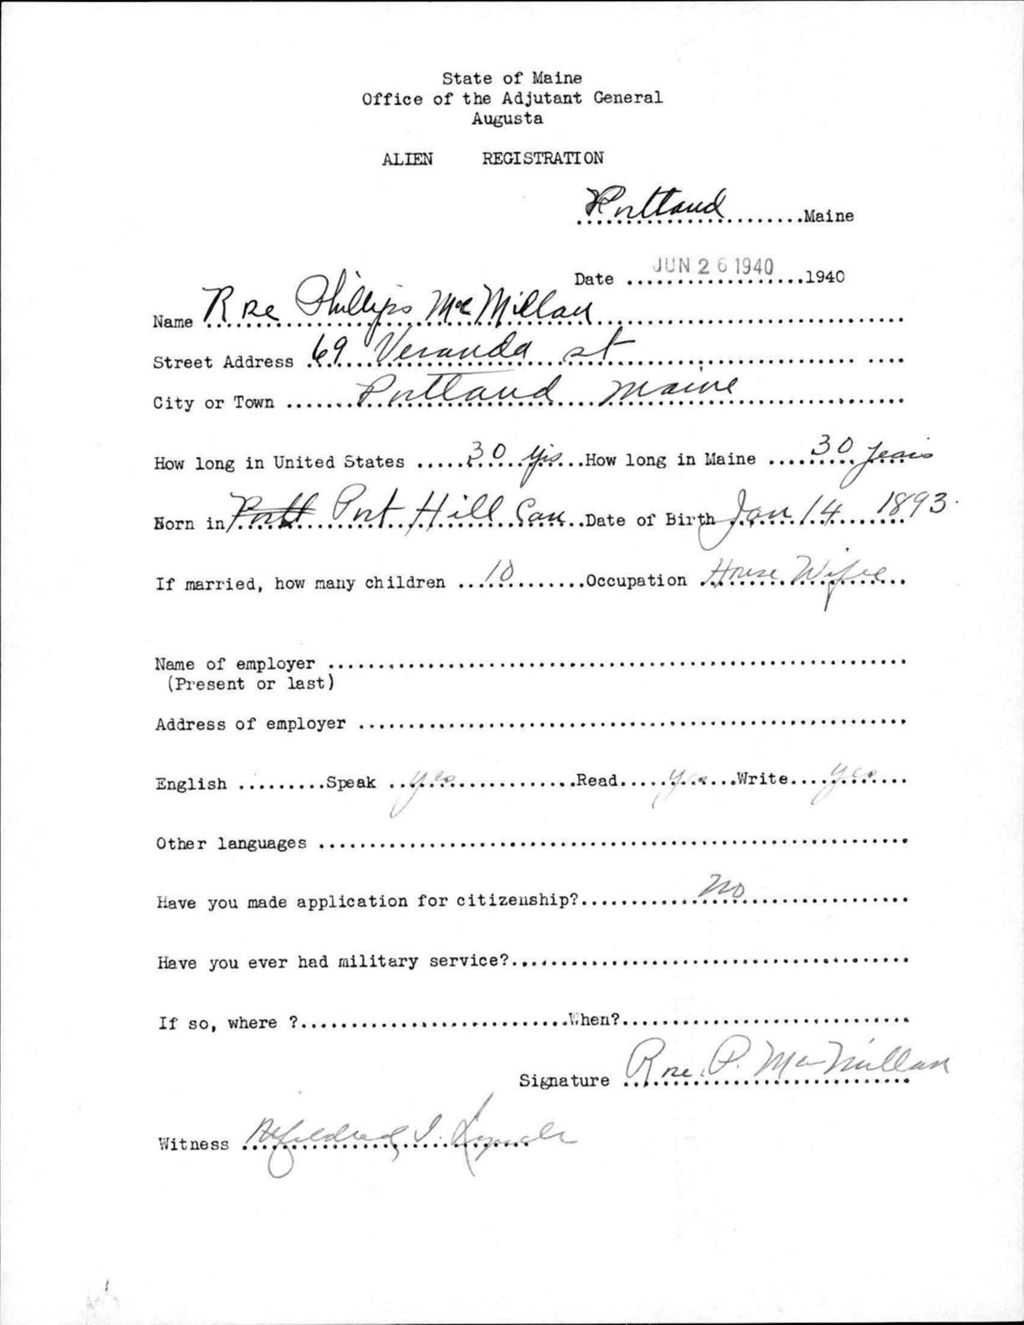 State of Maine
Office of the Adjutant General
Augusta
ALIEN REGISTRATION
Portland Maine
Date JUN 26 1940 1940
Name Roe Phillips McMillan
Street Address 69 Veranda st
City or Town Portland Maine
How long in United States 30 yrs How long in Maine 30 years
Born in Port Hill Can Date of Birth Jan 14 1893.
If married, how many children 10 Occupation House Wife
Name of employer
(Present or last)
Address of employer
English Speak yes Read yes Write yes
Other languages
Have you made application for citizenship? No
Have you ever had military service?
If so, where ? When?
Signature Roe P. McMillan
Witness Mildred I.